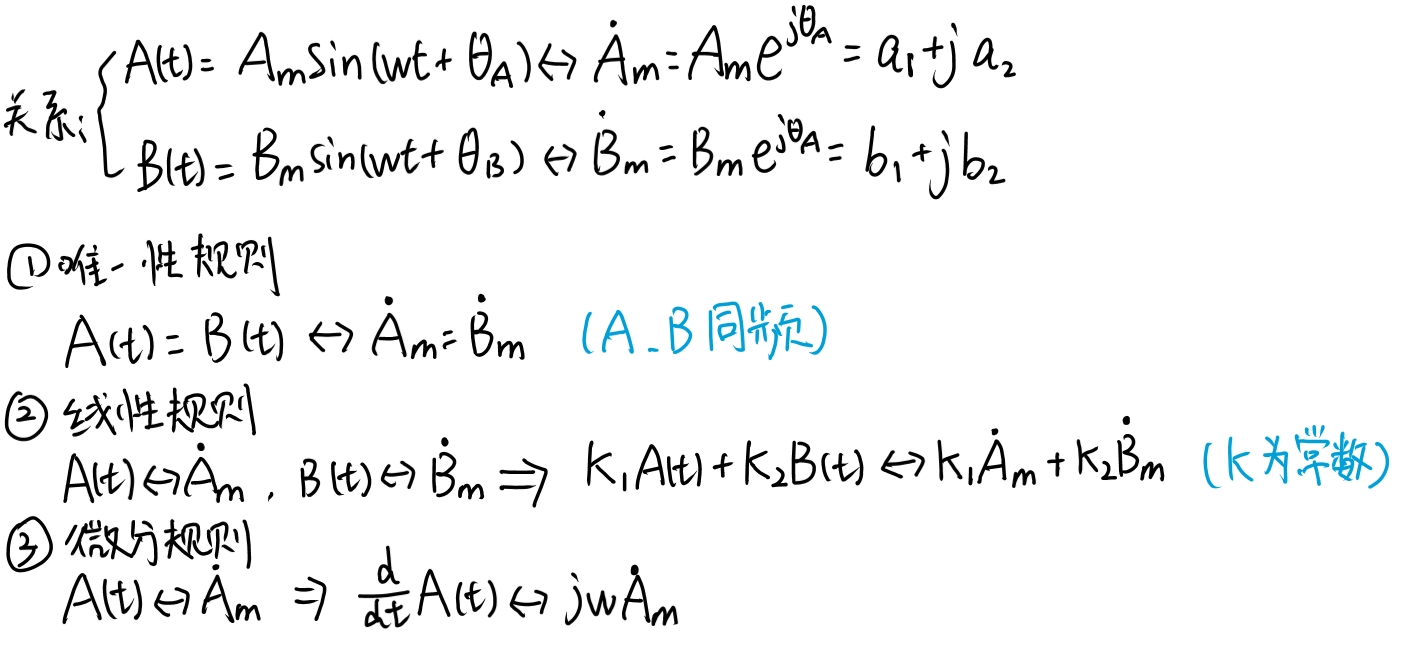 关系:
A(t)= Aₘsin(wt+ θ_A)↔ Ȧₘ=Aₘe^{jθ_A} = a₁+j a₂
B(t)= Bₘsin(wt+ θ_B) ↔ Ḃₘ = Bₘe^{jθ_A}= b₁+jb₂
①唯一性规则
A(t)= B(t) ↔ Ȧₘ=Ḃₘ (A、B同频)
② 线性规则
A(t)↔Ȧₘ , B(t)↔ Ḃₘ ⇒ K₁A(t)+K₂B(t) ↔K₁Ȧₘ+K₂Ḃₘ (K为常数)
③ 微分规则
A(t)↔Ȧₘ ⇒ \frac{d}{dt}A(t)↔ jwȦₘ